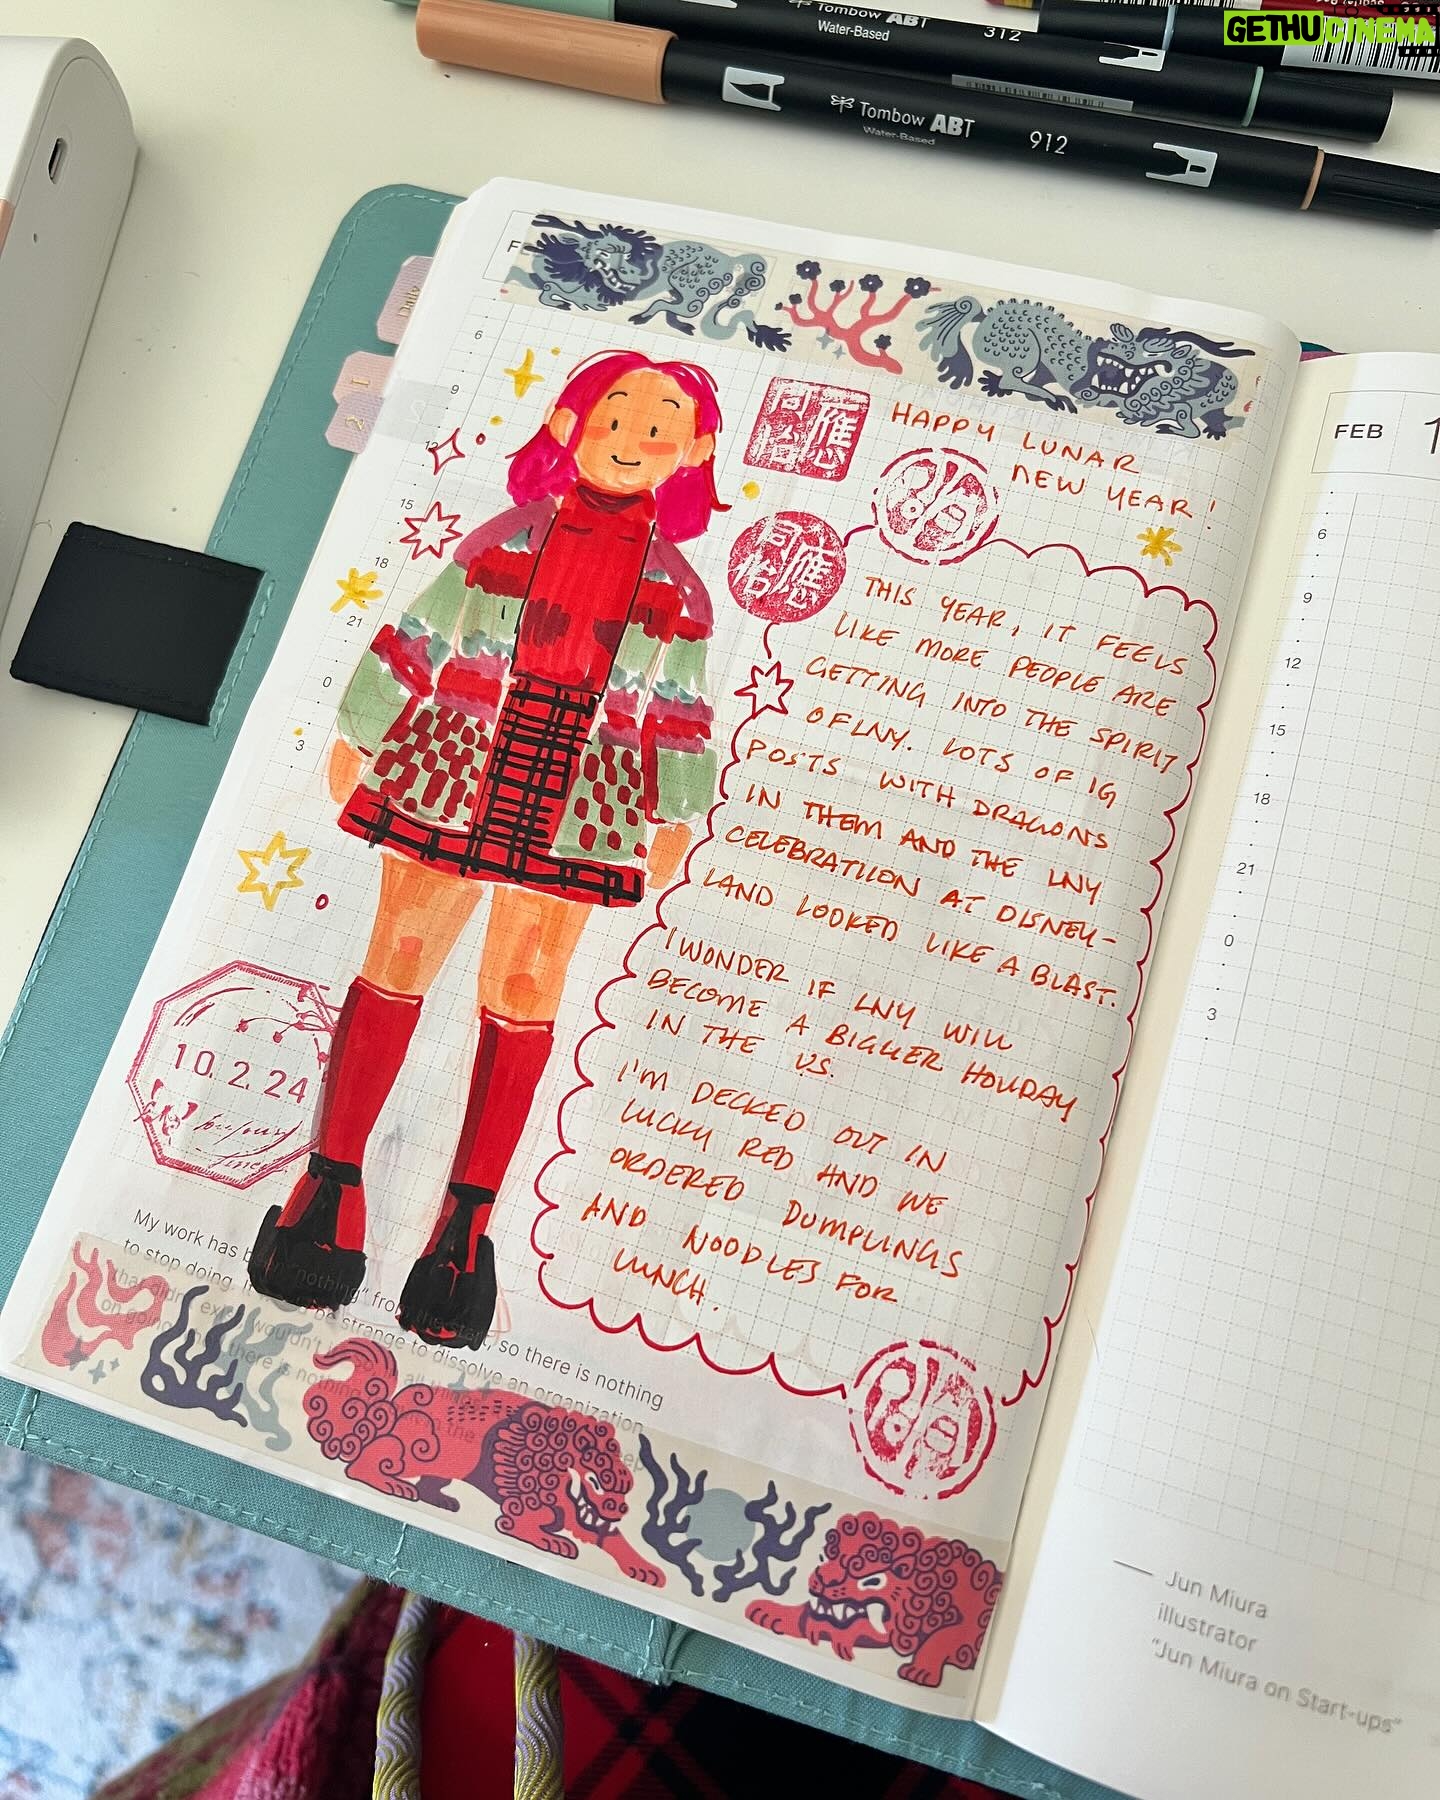 GETHUCINEMA
Tombow ABT
Water-Based
312
Tombow ABT
Water-Based
912
Daily
1
2
6
9
12
15
18
21
0
3
HAPPY LUNAR
NEW YEAR!
THIS YEAR, IT FEELS
LIKE MORE PEOPLE ARE
GETTING INTO THE SPIRIT
OF LNY. LOTS OF IG
POSTS WITH DRAGONS
IN THEM AND THE LNY
CELEBRATION AT DISNEY-
LAND LOOKED LIKE A BLAST.
I WONDER IF LNY WILL
BECOME A BIGGER HOLIDAY
IN THE US.
I'M DECKED OUT IN
LUCKY RED AND WE
ORDERED DUMPLINGS
AND NOODLES FOR
LUNCH.
10.2.24
My work has been "nothing" from the start, so there is nothing
to stop doing. be strange to dissolve an organization
FEB 1
6
9
12
15
18
21
0
3
Jun Miura
illustrator
"Jun Miura on Start-ups"